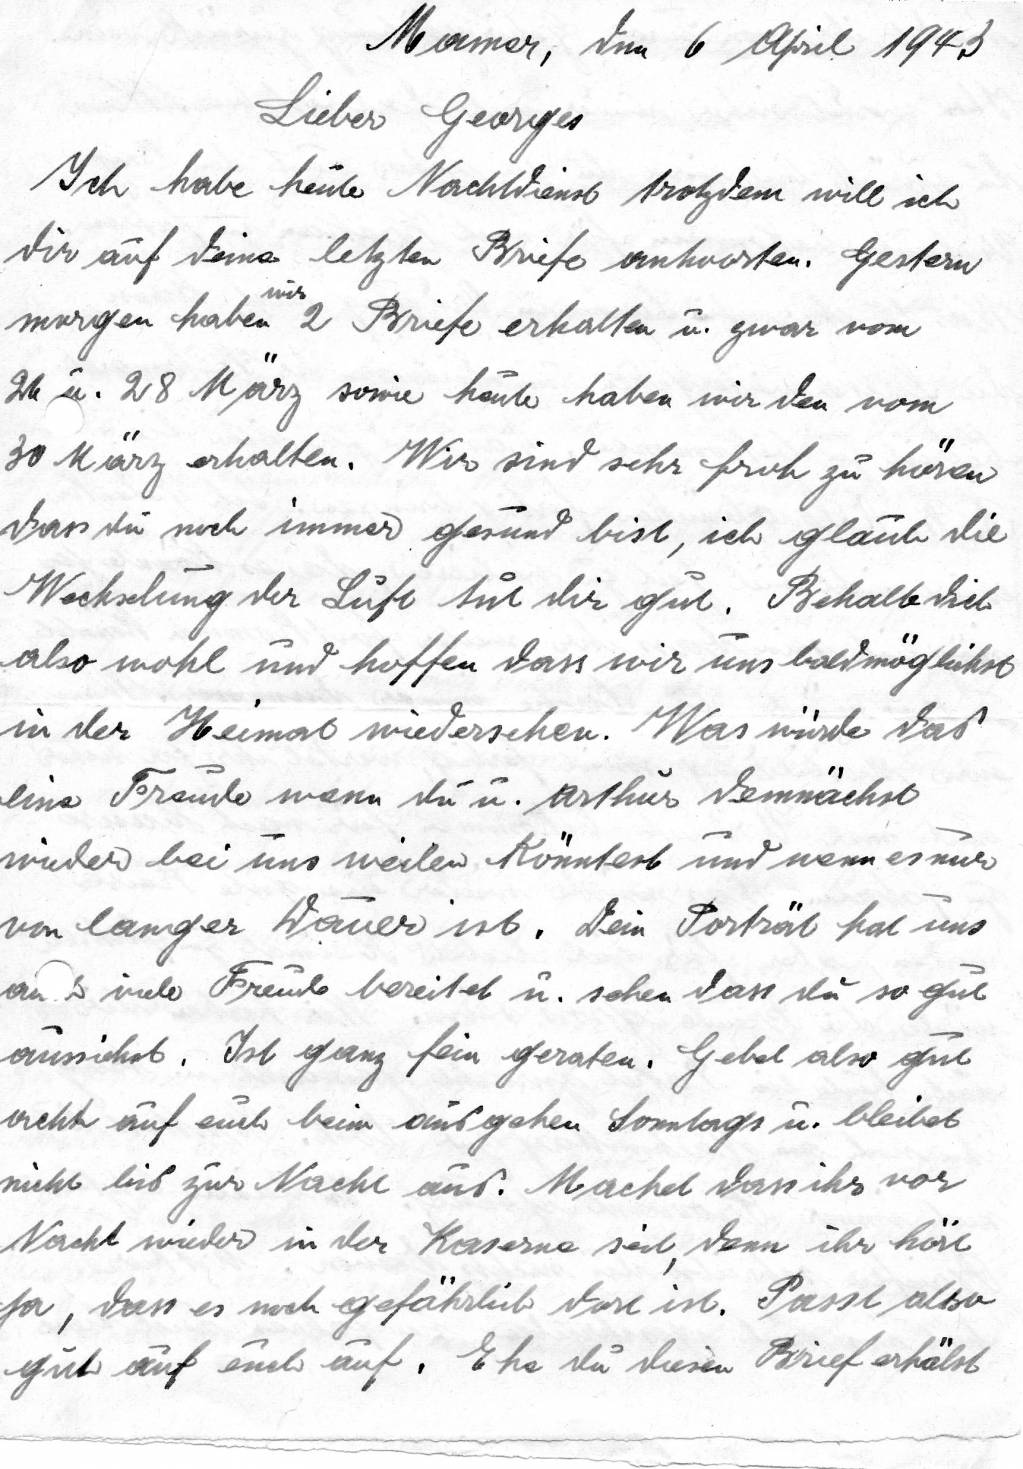 Mamer, den 6 April 1943
Lieber Georges
Ich habe heute Nachtdienst trotzdem will ich
dir auf deine letzten Briefe antworten. Gestern
morgen haben wir 2 Briefe erhalten u. zwar vom
26 u. 28 März sowie heute haben wir den vom
30 März erhalten. Wir sind sehr froh zu hören
dass du noch immer gesund bist, ich glaub die
Wechselung der Luft tut dir gut. Behalte dich
also wohl und hoffen dass wir uns baldmöglichst
in der Heimat wiedersehen. Was würde das
eine Freude wenn du u. Arthur demnächst
wieder bei uns weilen könntest und wenn es nur
von langer Dauer ist. Dein Porträt hat uns
viele Freude bereitet u. sehen dass du so gut
aussiehst. Ist ganz fein geraten. Gebet also gut
acht auf euch beim ausgehen Sonntags u. bleibet
nicht bis zur Nacht aus. Machet dass ihr vor
Nacht wieder in der Kaserne seit, denn ihr hört
ja, dass es noch gefährlich dort ist. Passt also
gut auf euch auf. Ehe du diesen Brief erhälst